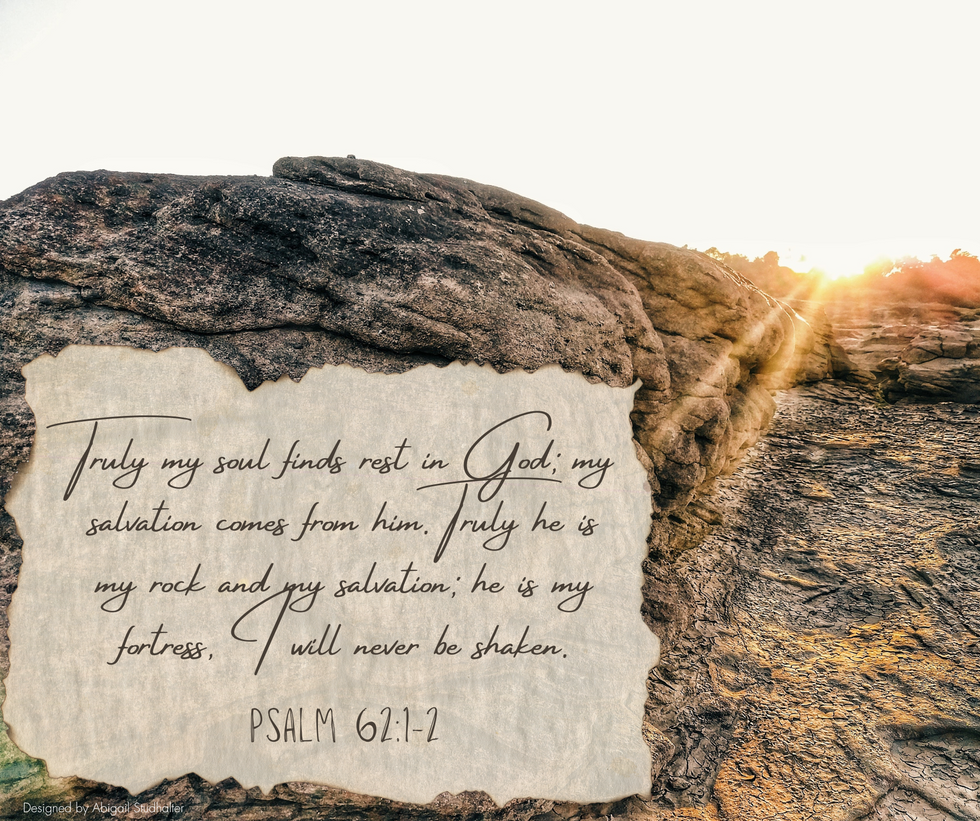 Truly my soul finds rest in God; my
salvation comes from him. Truly he is
my rock and my salvation; he is my
fortress, I will never be shaken.
PSALM 62:1-2
Designed by Abigail Studhalter